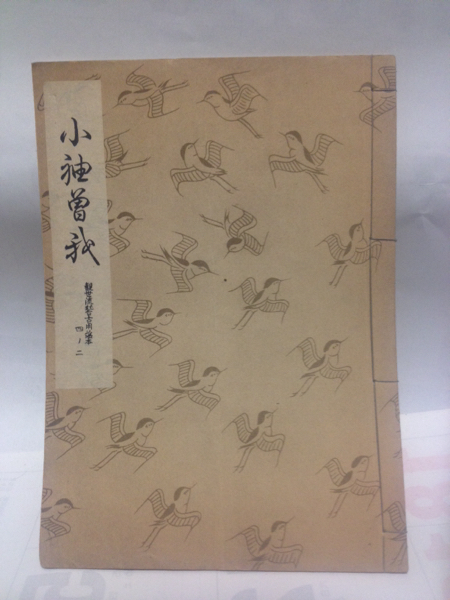 小袖曽我
観世流稽古用謡本
四ノ二